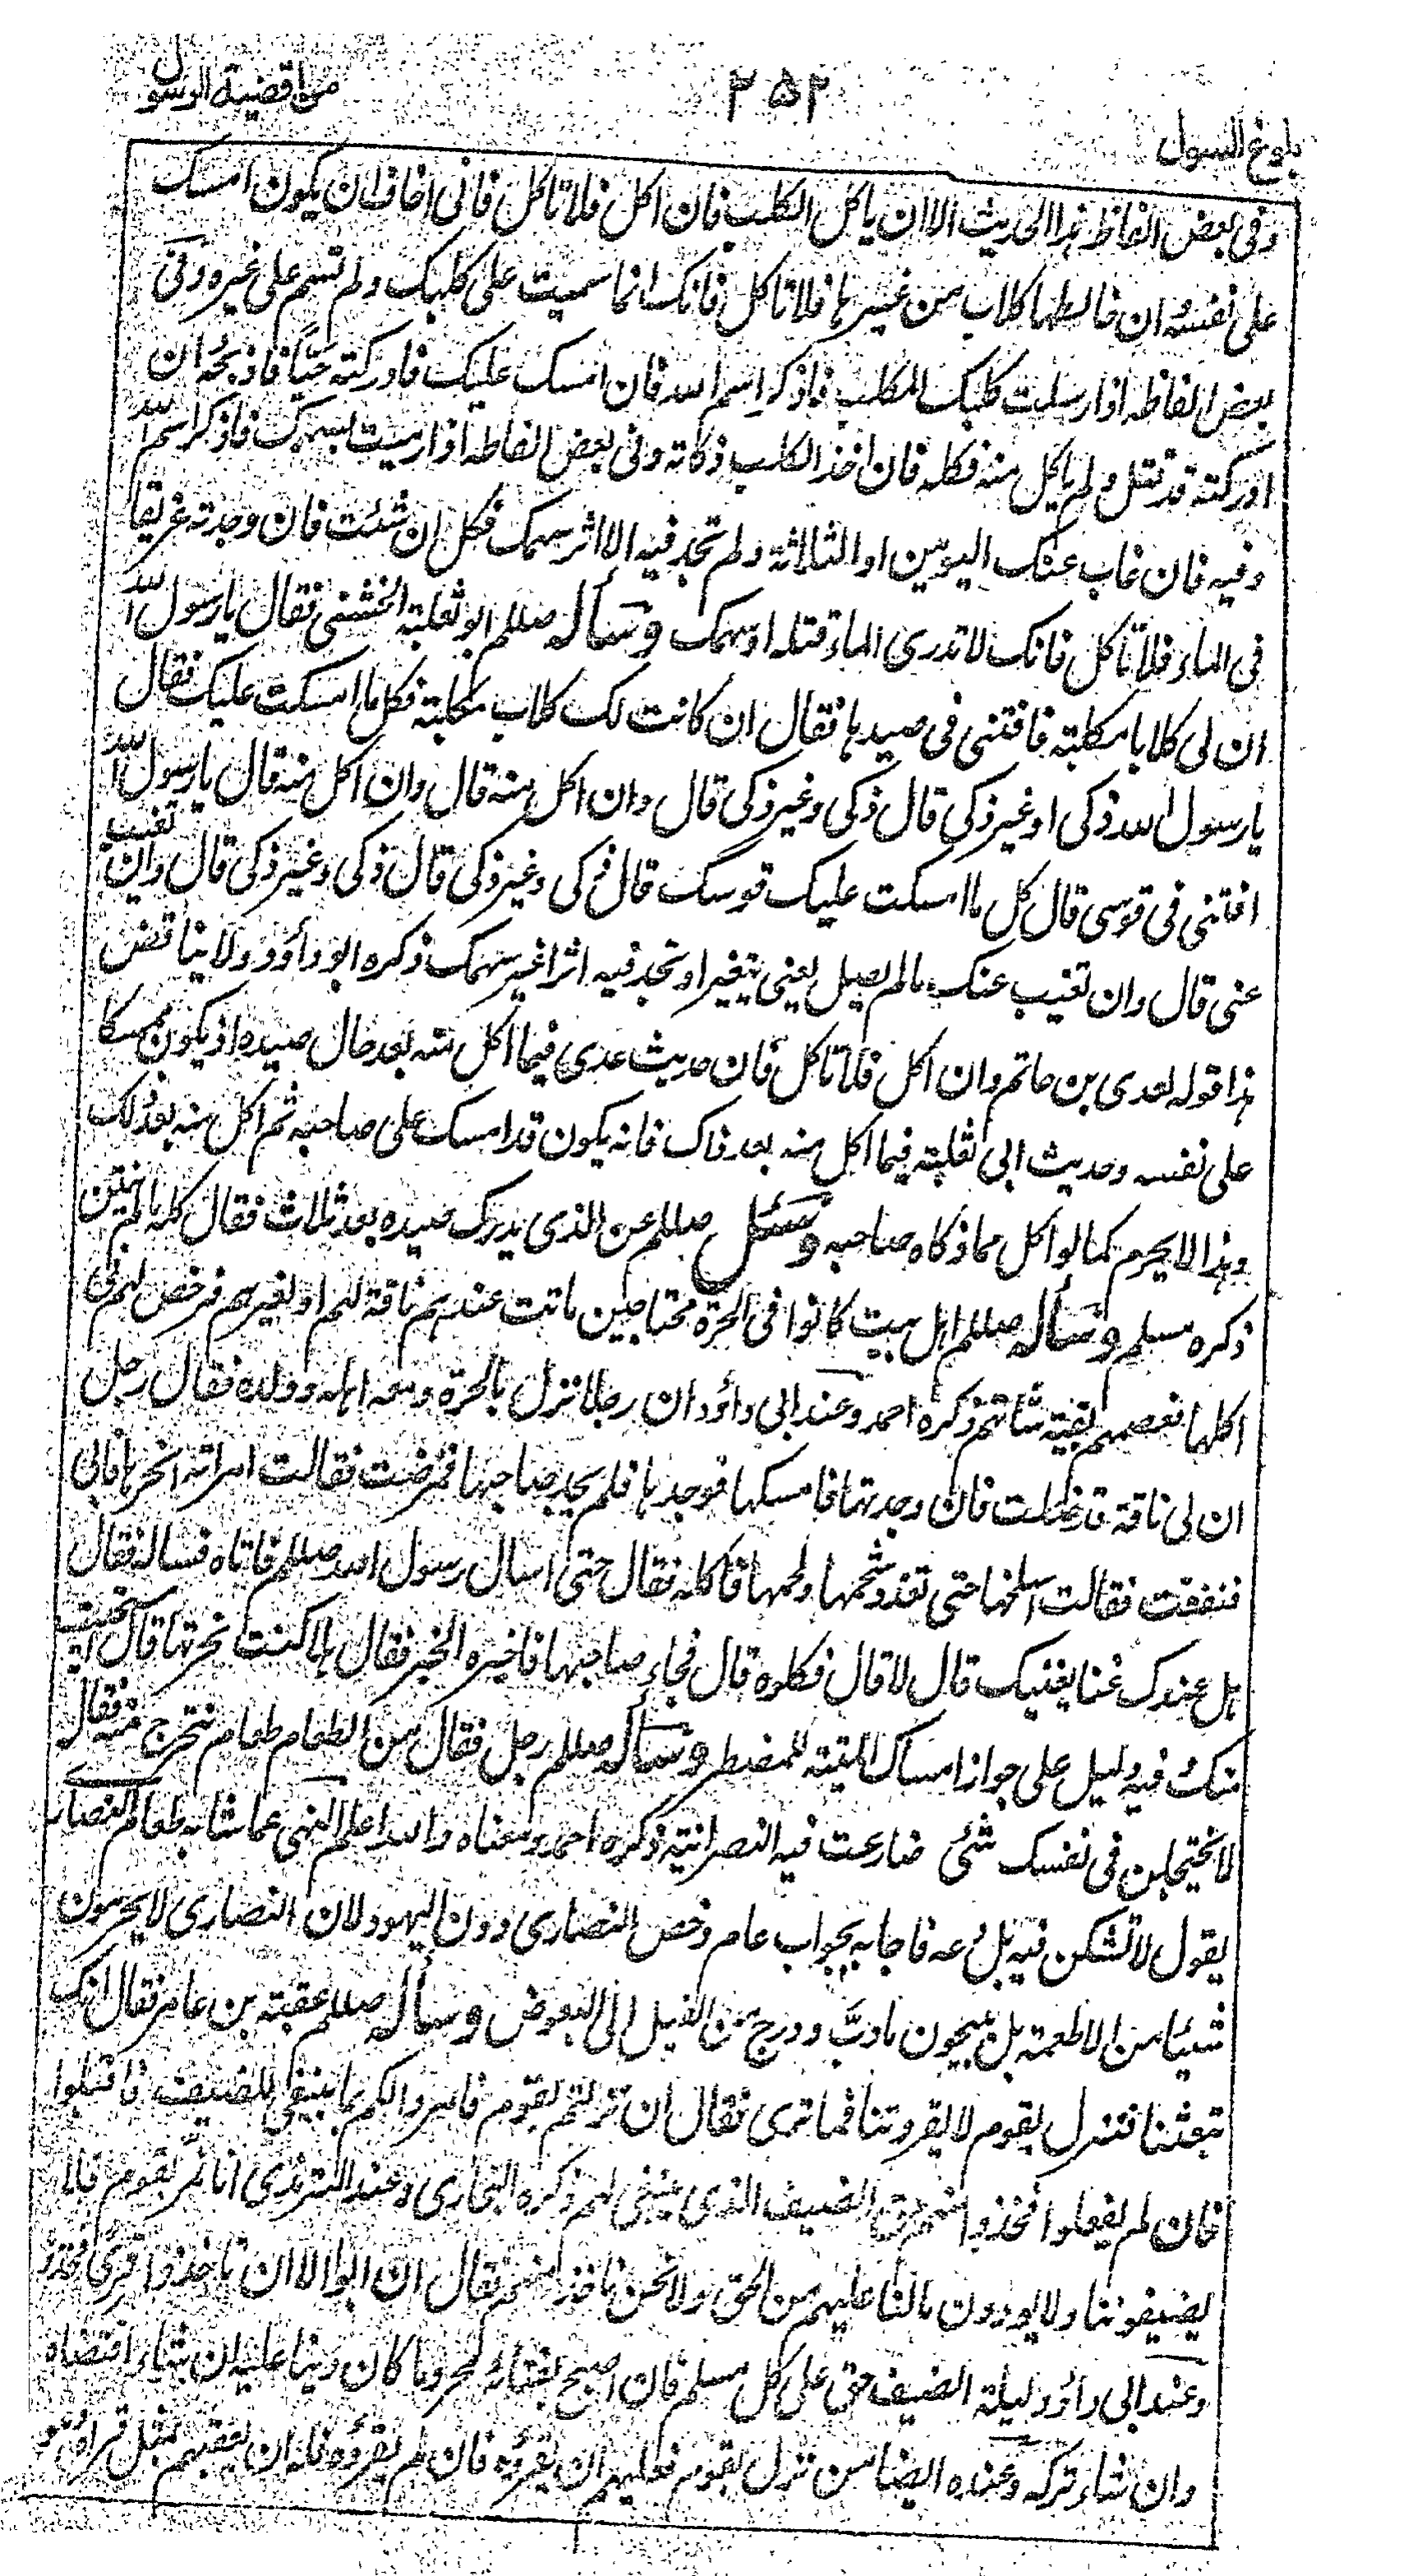 من اقضية الرسول
۲۵۲
بلوغ السول
وفى بعض الفاظ هذا الحديث الا ان ياكل الكلب فان اكل فلا تاكل فانى اخاف ان يكون امسك
على نفسه ان خالطها كلاب من غيرها فلا تاكل فانك انما سميت على كلبك ولم تسم على غيره وفى
بعض الفاظه اذا ارسلت كلبك المكلب فاذكر اسم الله فان امسك عليك فادركته حيًّا فاذبحه ان
ادركته قد قتل ولم ياكل منه فكله فان اخذ الكلب ذكاته وفى بعض الفاظه اذا رميت بسهمك فاذكر اسم الله
وفيه فان غاب عنك اليومين او الثلاثة ولم تجد فيه الا اثر سهمك فكل ان شئت فان وجدته غريقا
فى الماء فلا تاكل فانك لا تدرى الماء قتله او سهمك وسأله صللم ابو ثعلبة الخشنى فقال يا رسول الله
ان لى كلابا مكلبة فافتنى فى صيدها فقال ان كانت لك كلاب مكلبة فكل ما امسكت عليك فقال
يا رسول الله ذكى او غير ذكى قال ذكى وغير ذكى قال وان اكل منه قال وان اكل منه قال يا رسول الله
افتنى فى قوسى قال كل ما امسكت عليك قوسك قال ذكى وغير ذكى قال ذكى وغير ذكى قال وان تغيب
عنى قال وان تغيب عنك ما لم يصل يعنى يتغير او تجد فيه اثرا غير سهمك ذكره ابو داؤد ولا يناقض
هذا قوله لعدى بن حاتم وان اكل فلا تاكل فان حديث عدى فيما اكل منه بعد حال صيده اذ يكون ممسكا
على نفسه وحديث ابى ثعلبة فيما اكل منه بعد ذاك فانه يكون قد امسك على صاحبه ثم اكل منه بعد ذلك
وهذا لا يحرم كما لو اكل مما ذكاه صاحبه وسئل صللم عن الذى يدرك صيده بعد ثلاث فقال كله ما لم ينتن
ذكره مسلم وسأله صللم اهل بيت كانوا فى الحرة محتاجين ماتت عندهم ناقة لهم او لغيرهم فرخص لهم فى
اكلها فعصمهم بقية شاتهم ذكره احمد وعند ابى داؤد ان رجلا نزل بالحرة ومعه اهله وولده فقال رجل
ان لى ناقة قد ضلت فان وجدتها فامسكها فوجدها فلم يجد صاحبها فمرضت فقالت امراته انحرها فابى
فنفقت فقالت اسلخها حتى تقدد شحمها ولحمها فاكله فقال حتى اسال رسول الله صللم فاتاه فساله فقال
هل عندك غنا يغنيك قال لا قال فكلوه قال فجاء صاحبها فاخبره الخبر فقال هلا كنت نحرتها قال استحييت
منك فيه دليل على جواز امساك الميتة للمضطر وسأله صللم رجل فقال من الطعام طعام نتحرج منه فقال
لا يختلجن فى نفسك شئ ضارعت فيه النصرانية ذكره احمد ومعناه والله اعلم النهى عما شابه طعام النصارى
يقول لا تشكن فيه بل دعه فاجابه بجواب عام وخص النصارى دون اليهود لان النصارى لا يحرمون
شيئا من الاطعمة بل يبيحون ما دبّ ودرج من الفيل الى البعوض وسأله صللم عقبة بن عامر فقال انك
تبعثنا فننزل بقوم لا يقروننا فما ترى فقال ان نزلتم بقوم فامروا لكم بما ينبغى للضيف فاقبلوا
فان لم يفعلوا فخذوا منهم حق الضيف الذى ينبغى لهم ذكره البخارى وعند الترمذى انا نمر بقوم فلا
يضيفوننا ولا يودون ما لنا عليهم من الحق ولا نحن ناخذ منهم فقال ان ابوا الا ان تاخذوا قرى فخذوا
وعند ابى داؤد ليلة الضيف حق على كل مسلم فان اصبح بفنائه محروما كان دينا عليه ان شاء اقتضاه
وان شاء تركه وعنده ايضا من نزل بقوم فعليهم ان يقروه فان لم يقروه فله ان يعقبهم بمثل قراه